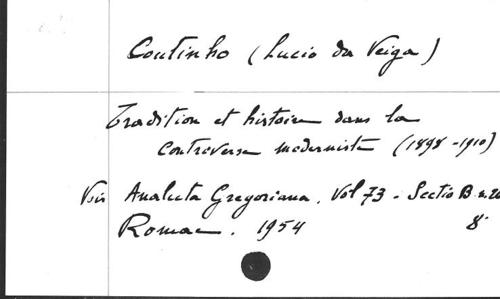 Coutinho (Lucio da Veiga)
Tradition et histoire dans la
controverse moderniste (1898-1910)
Voir Analecta Gregoriana. Vol 73 - Sectio B. n. 20
Romae. 1954 8°